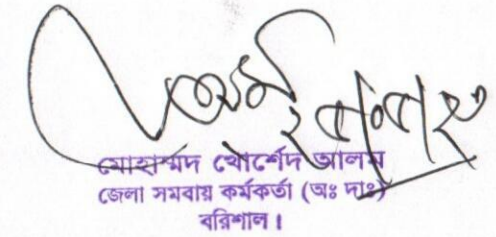 মোহাম্মদ খোর্শেদ আলম
জেলা সমবায় কর্মকর্তা (অঃ দাঃ)
বরিশাল।